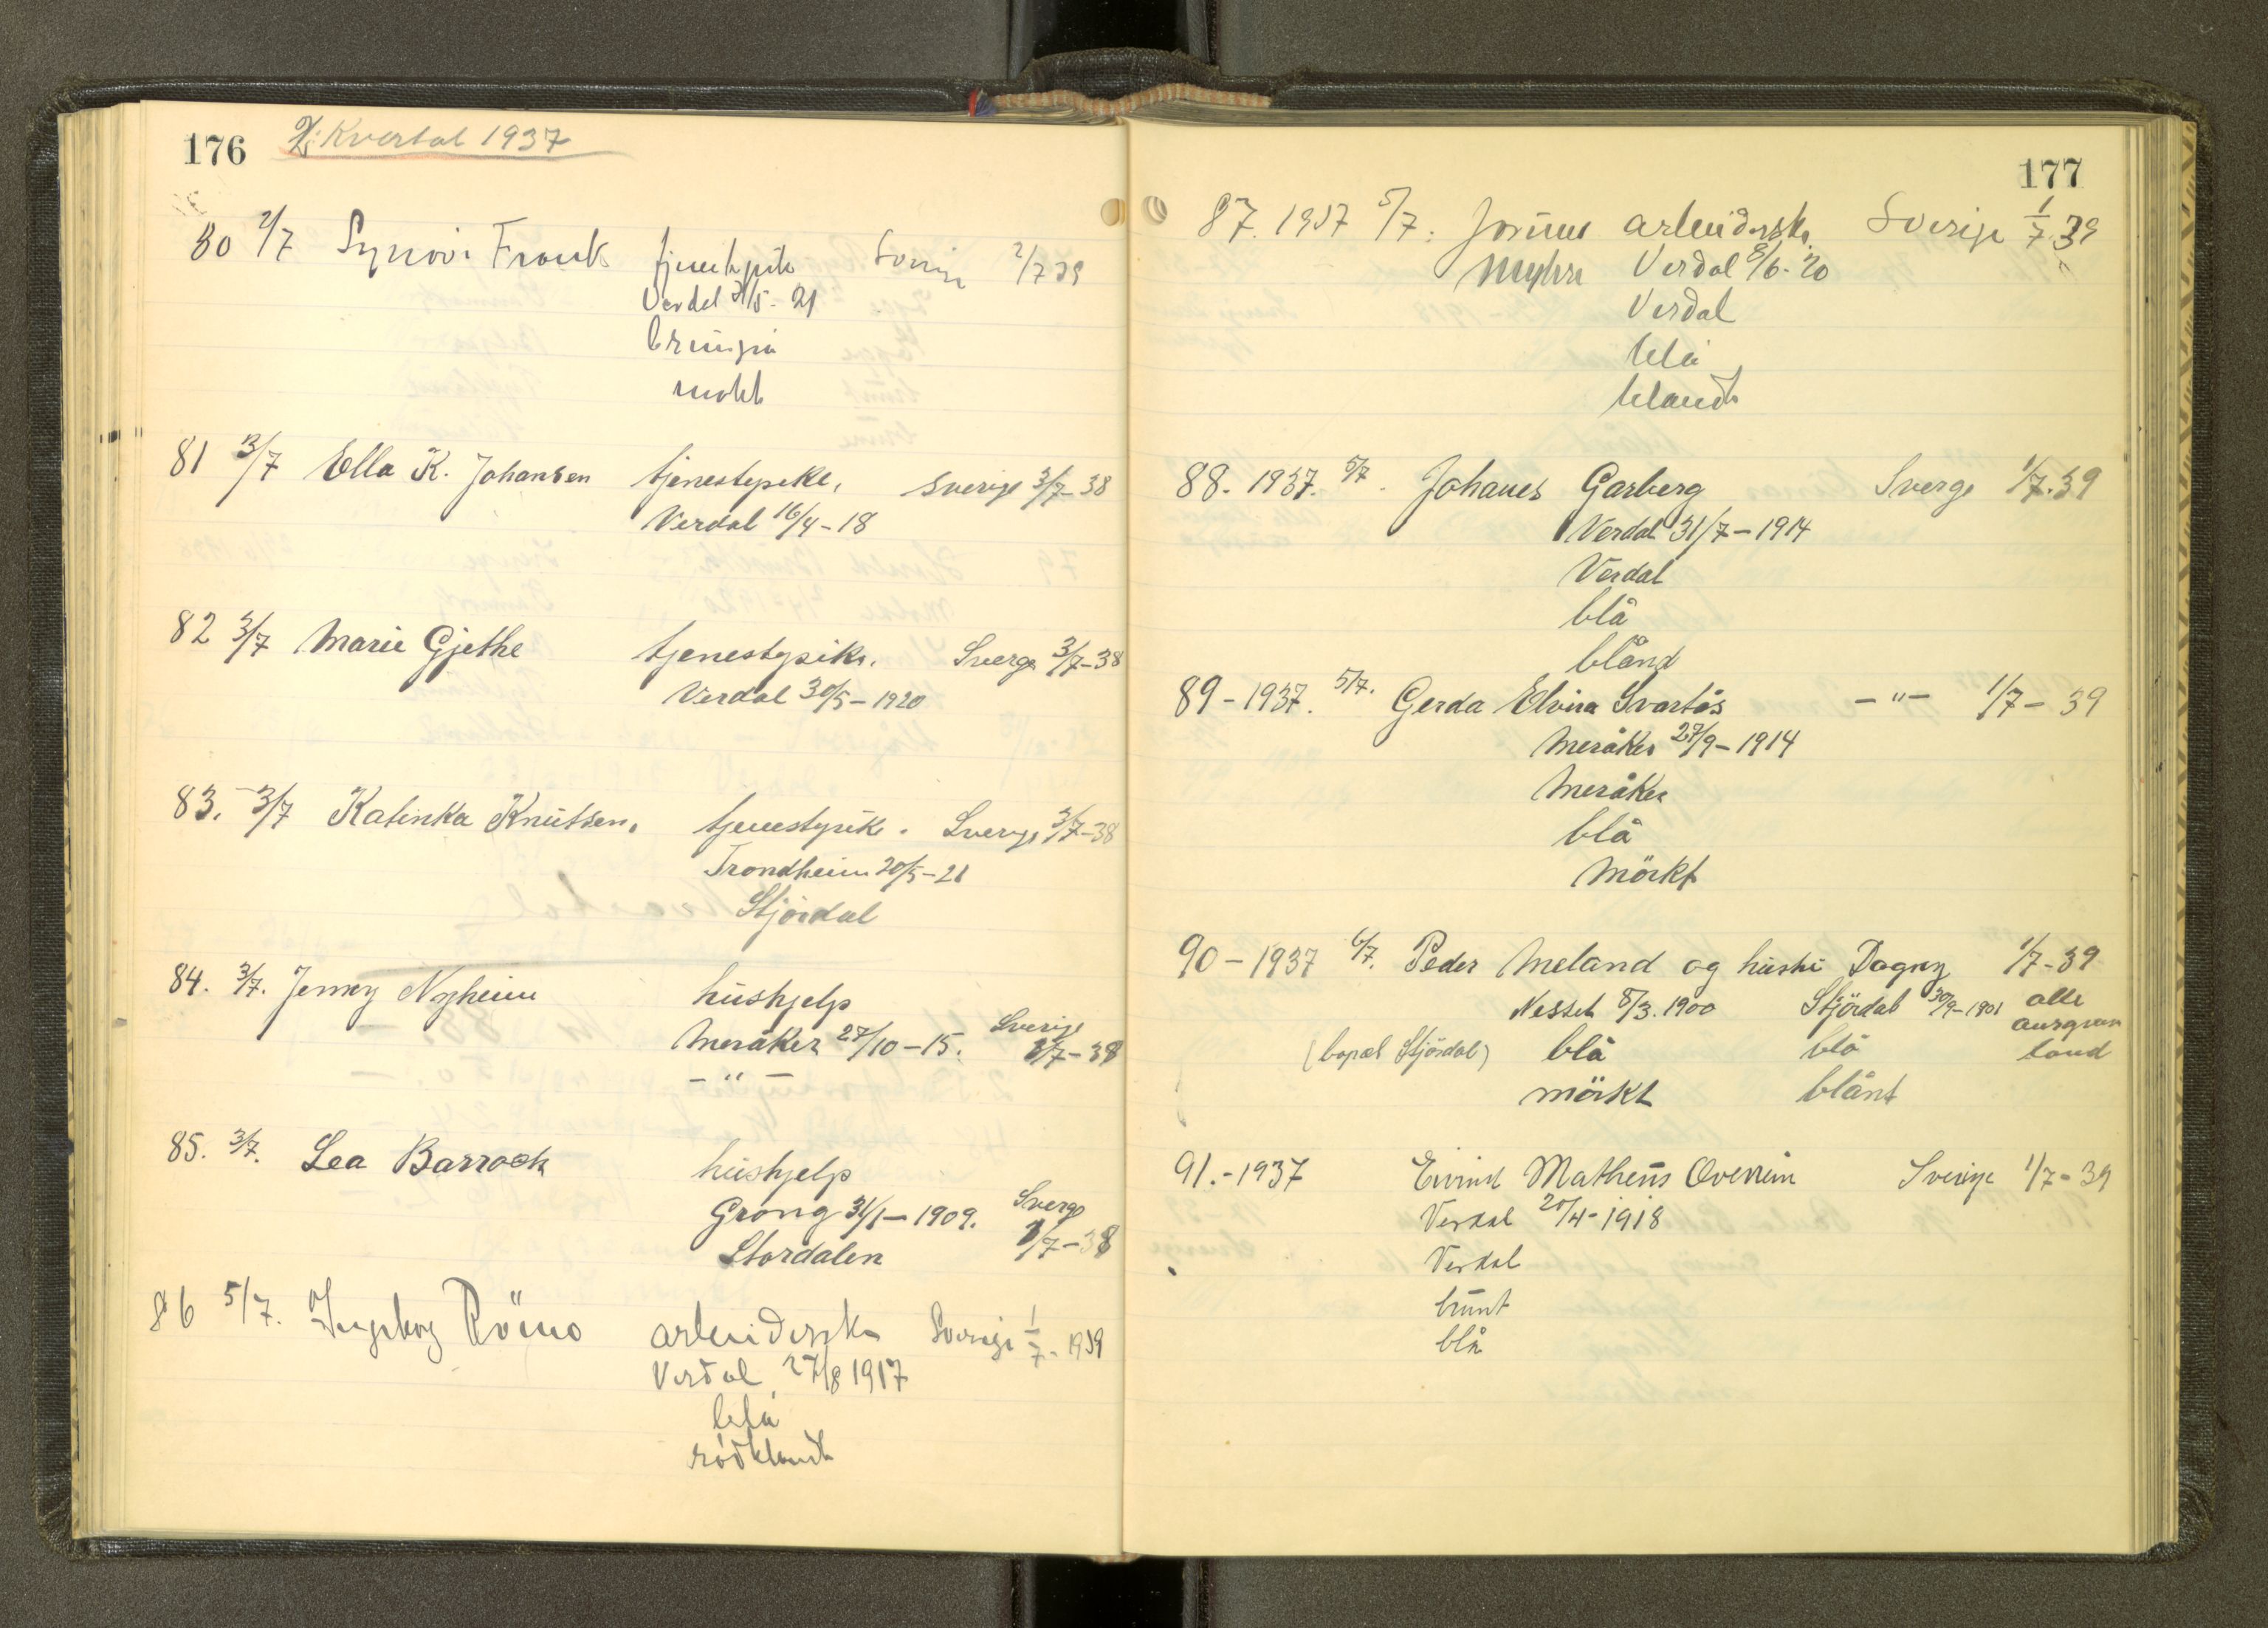 176 2. Kvartal 1937
80 2/7 Synøvi Frank tjenestpike Sverige 2/7 39
Verdal 31/5 - 21
brungrå
mørkt
81 3/7 Ella K. Johansen tjenestepike, Sverige 3/7-38
Verdal 16/4-18
82 3/7 Marie Gjethe tjenestpike. Sverge 3/7-38
Verdal 30/5-1920
83. 3/7 Katinka Knutsen, tjenestpike. Sverige 3/7-38
Trondheim 20/5-21
Stjördal
84. 3/7. Jenny Nyheim hushjelp
Meråker 27/10-15. Sverige 1/7-38
- " -
85. 3/7. Lea Barrock hushjelp
Grong 31/1-1909. Sverge
Stordalen 1/7-38
86 5/7. Ingeborg Römo arbeiderske Sverige 1/7-1939
Verdal 27/8 1917
blå
rødblondt
177
87. 1937 5/7. Jorunn arbeiderske Sverige 1/7 39
Myhre Verdal 8/6-20
Verdal
blå
blondt
88. 1937. 5/7 Johanes Garberg Sverge 1/7.39
Verdal 31/7-1914
Verdal
blå
blånd
89-1937. 5/7. Gerda Elvira Svartås - " - 1/7-39
Meråker 27/9-1914
Meråker
blå
Mörkt
90-1937 6/7. Peder Meland og hustru Dagny 1/7-39
Nesset 8/3.1900 Stjördal 30/9-1901 alle
(bopæl Stjördal) blå blå land
mörkt blånt
91.-1937 Eivind Matheus Overrein Sverige 1/7-39
Verdal 20/4-1918
Verdal
brunt
blå